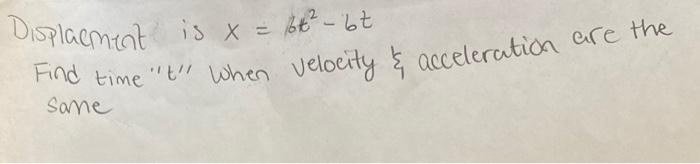 Displacmint is x = 6t² - 6t
Find time "t" when velocity & acceleration are the
same